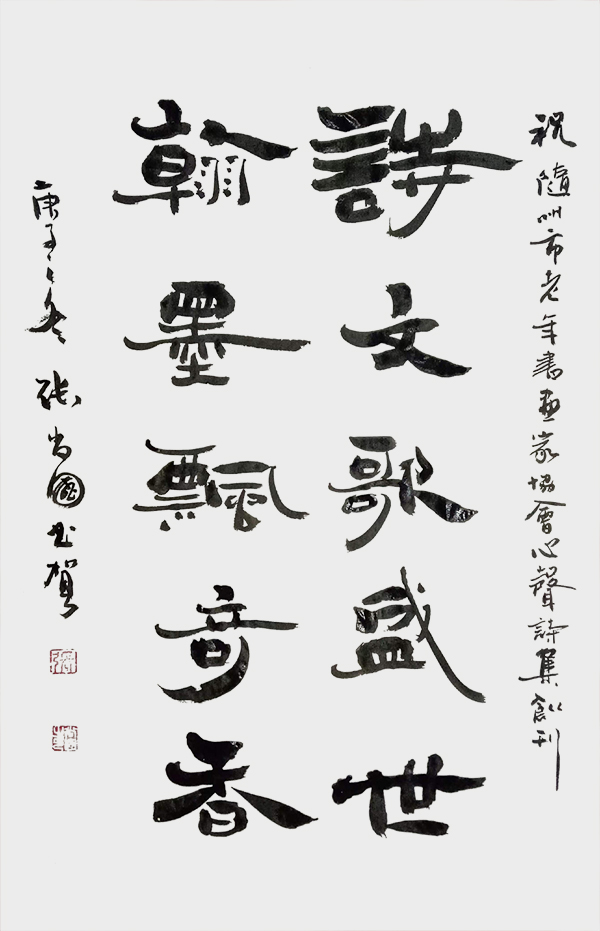 祝隨州市老年書畫家協會心聲詩集創刊
詩文歌盛世
翰墨飄奇香
庚子之冬 張尚國書賀